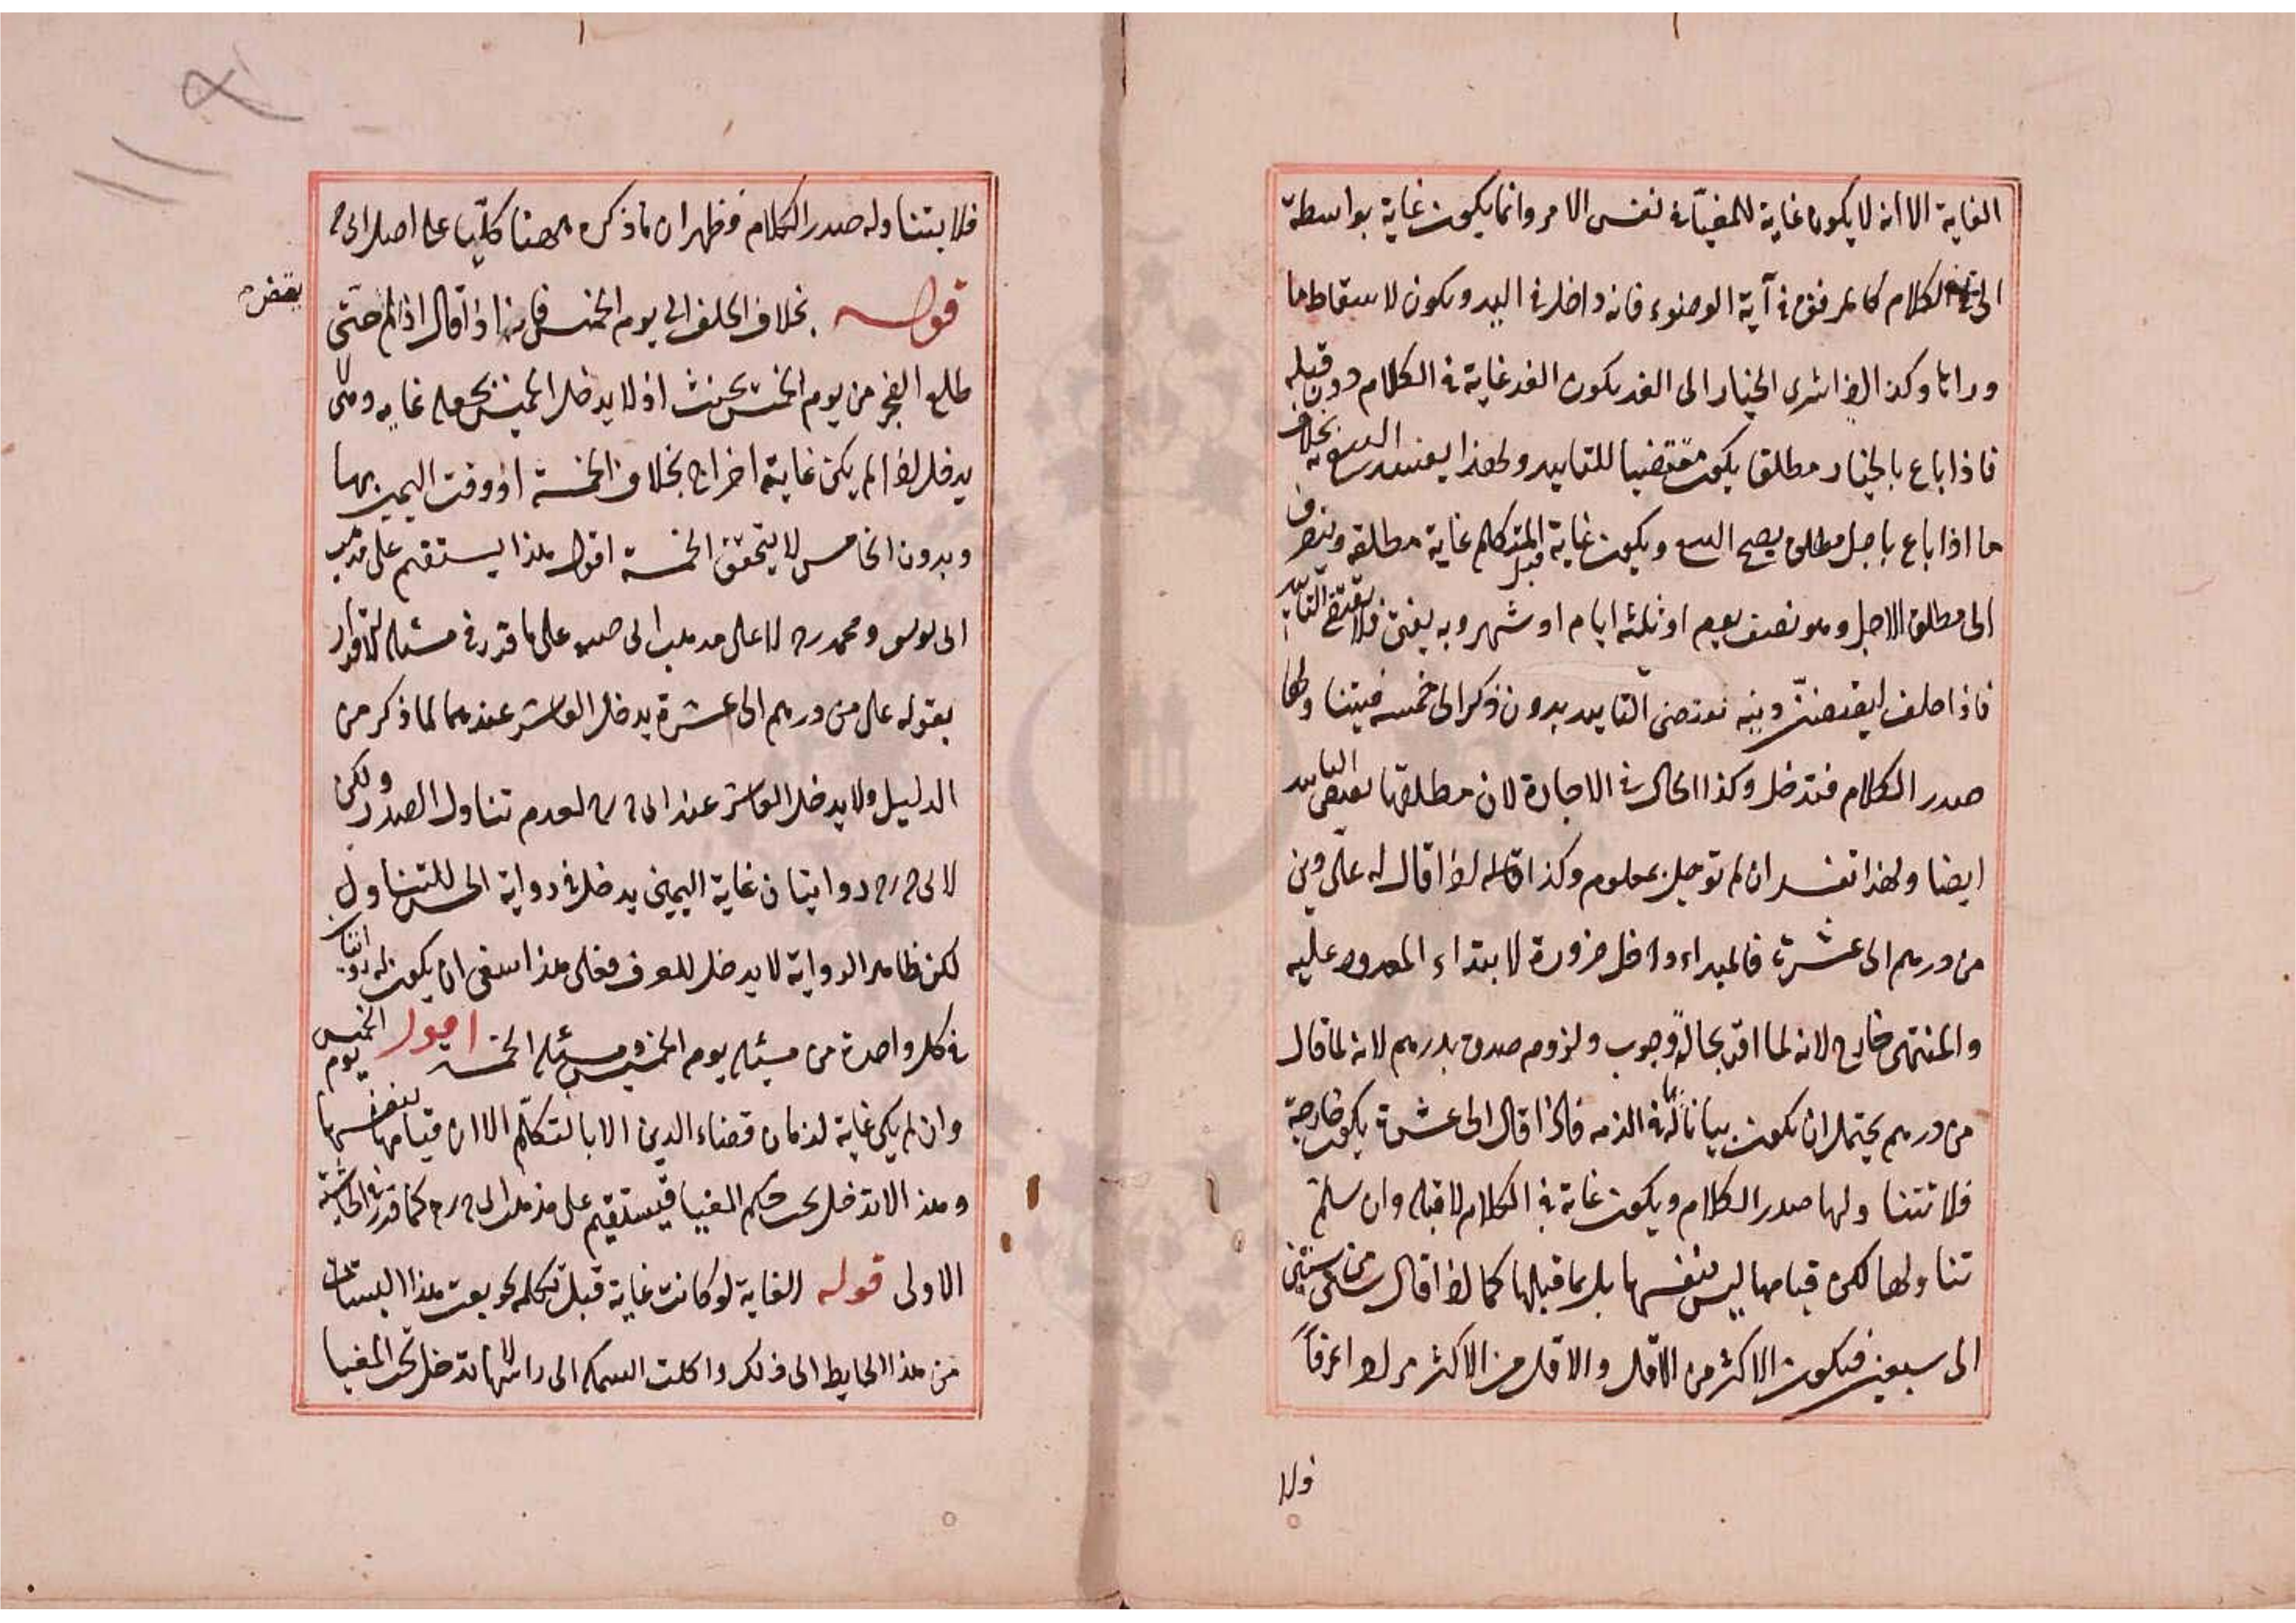 الغاية الا انه لا يكون غاية للمغيّا في نفس الامر وانما يكون غاية بواسطة
الكلام كالمرفق في آية الوضوء فانه داخل في اليد ويكون لاسقاط ما
وراءنا وكذا اذا اشرى الخيار الى الغد يكون الغد غاية في الكلام دون قبله
فاذا باع بالخيار مطلقا يكون مقتضيا للتابيد ولهذا يفسد البيع به بخلاف
ما اذا باع باجل مطلق يصح البيع ويكون غاية قبل المتكلم غاية مطلقه وينصرف
الى مطلق الاجل وهو نصف يوم او ثلثه ايام او شهر وبه يفتى فلا يقتضى التابيد
فاذا حلف ليقضين دينه يقتضى التابيد بدون ذكر الى خمسه فيتناولها
صدر الكلام فتدخل وكذا الحال في الاجارة لان مطلقها يقتضى التابيد
ايضا ولهذا تفسد ان لم توجل بمعلوم وكذا اذا قال له على دين
من درهم الى عشرة فالمبداء داخل ضرورة لابتداء المعدود عليه
والمنتهى خارج لانه لما اقر بحاله وجوب ولزوم صدق بدرهم لانه لما قال
من درهم يحتمل ان يكون بيانا لما في الذمه فاذا قال الى عشرة يكون خارجة
فلا تتناولها صدر الكلام ويكون غاية في الكلام لا قبله وان سلم
تناولها لكن قيامها ليس بنفسها بل بما قبلها كما اذا قال سنى من ستين
الى سبعين فيكون الاكثر من الاقل والاقل من الاكثر مرادا عرفاً
فلا
فلا يتناوله صدر الكلام فظهر ان ما ذكره ههنا كليّا على اصل ابى ح
قوله بخلاف الحلف الى يوم الخميس فانه اذا قال اذا لم حتى
يقض
طلع الفجر من يوم الخميس يحنث اذ لا يدخل الخميس بجعله غايه ومتى لا
يدخل اذا لم يكن غاية اخراج بخلاف الخمسة اذ وقت اليمين بها
وبدون الخامس لا يتحقق الخمسة اقول هذا يستقيم على مذهب
ابى يوسف ومحمد رح لا على مذهب ابى حنيفه على ما قرر في مسئله الاقرار
بقوله على من درهم الى عشرة يدخل العاشر عندهما لما ذكر من
الدليل ولا يدخل العاشر عند ابى ح رح لعدم تناول الصدر ولكن
لابى ح رح روايتان غاية اليمين يدخل في رواية الحسن للتناول
لكن ظاهر الرواية لا يدخل للعرف فعلى هذا ينبغى ان يكون له روايتان
في كل واحدة من مسئله يوم الخميس ومسئله الخمسة اقول يوم الخميس
وان لم يكن غاية لزمان قضاء الدين الا بالتكلّم الا ان قيامها بنفسها
وهذا لا تدخل تحت حكم المغيا فيستقيم على مذهب ابى ح رح كما قرر في الحاشيته
الاولى قوله الغاية لو كانت غاية قبل تكلمه نحو بعت هذا البستان
من هذا الحايط الى ذلك واكلت السمكه الى راسها لا تدخل تحت المغيا